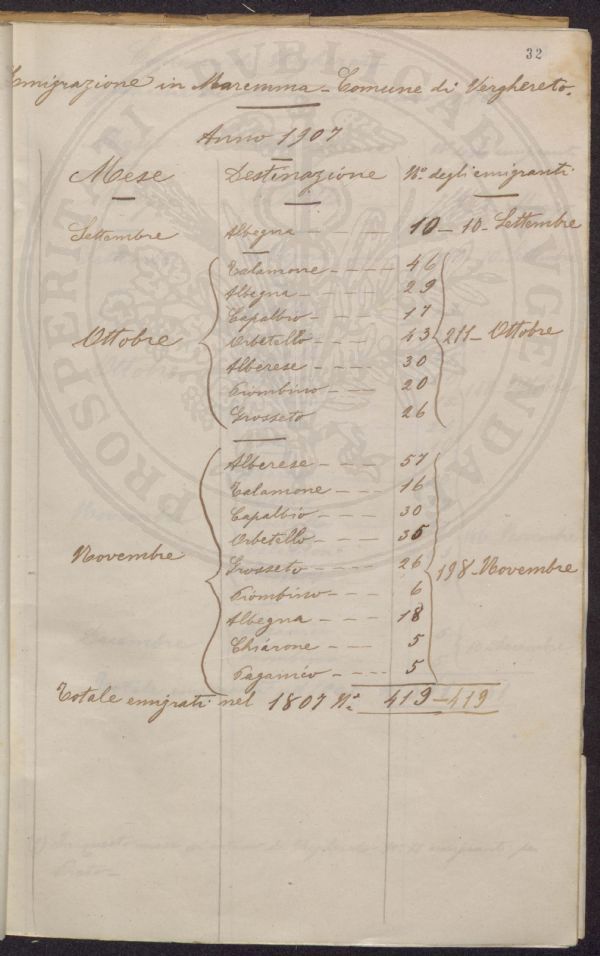 32
Emigrazione in Maremma - Comune di Verghereto.
Anno 1907
Mese Destinazione N.o degli emigranti
Settembre Albegna - - - 10 - 10 - Settembre
Talamone - - - - 46
Albegna - - - - 29
Capalbio - - - 17
Ottobre Orbetello - - - 43 211 - Ottobre
Alberese - - - 30
Piombino - - - 20
Grosseto 26
Alberese - - - 57
Talamone - - - 16
Capalbio - - - 30
Orbetello - - - 35
Novembre Grosseto - - - 26 198 - Novembre
Piombino - - - 6
Albegna - - - 18
Chiarone - - - 5
Paganico - - - 5
Totale emigrati nel 1807 N.o 419 - 419
PROSPERITATI PVBLICAE AVGENDAE